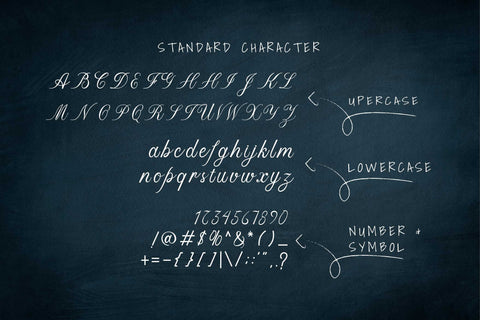 STANDARD CHARACTER
A B C D E F G H I J K L
M N O P Q R S T U V W X Y Z
UPERCASE
abcdefghijklm
nopqrstuvwxyz
LOWERCASE
1234567890
/@#$%^&*()_
+=-{}[]|\/:;'",.?
NUMBER +
SYMBOL